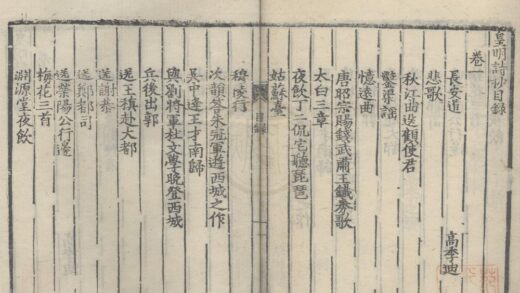 皇明詩抄目録
卷一
長安道 高季迪
悲歌
秋江曲送顧使君
鑿渠謠
憶遠曲
唐昭宗賜錢武肅王鐵券歌
太白三章
夜飲丁二侃宅聽琵琶
姑蘇臺
目録 一
穆陵行
次韻答朱冠軍遊西城之作
吳中逢王才南歸
與劉將軍杜文學晚登西城
兵後出郭
送王稹赴大都
送謝恭
送都司
送陽公行邊
梅花三首
淵源堂夜飲